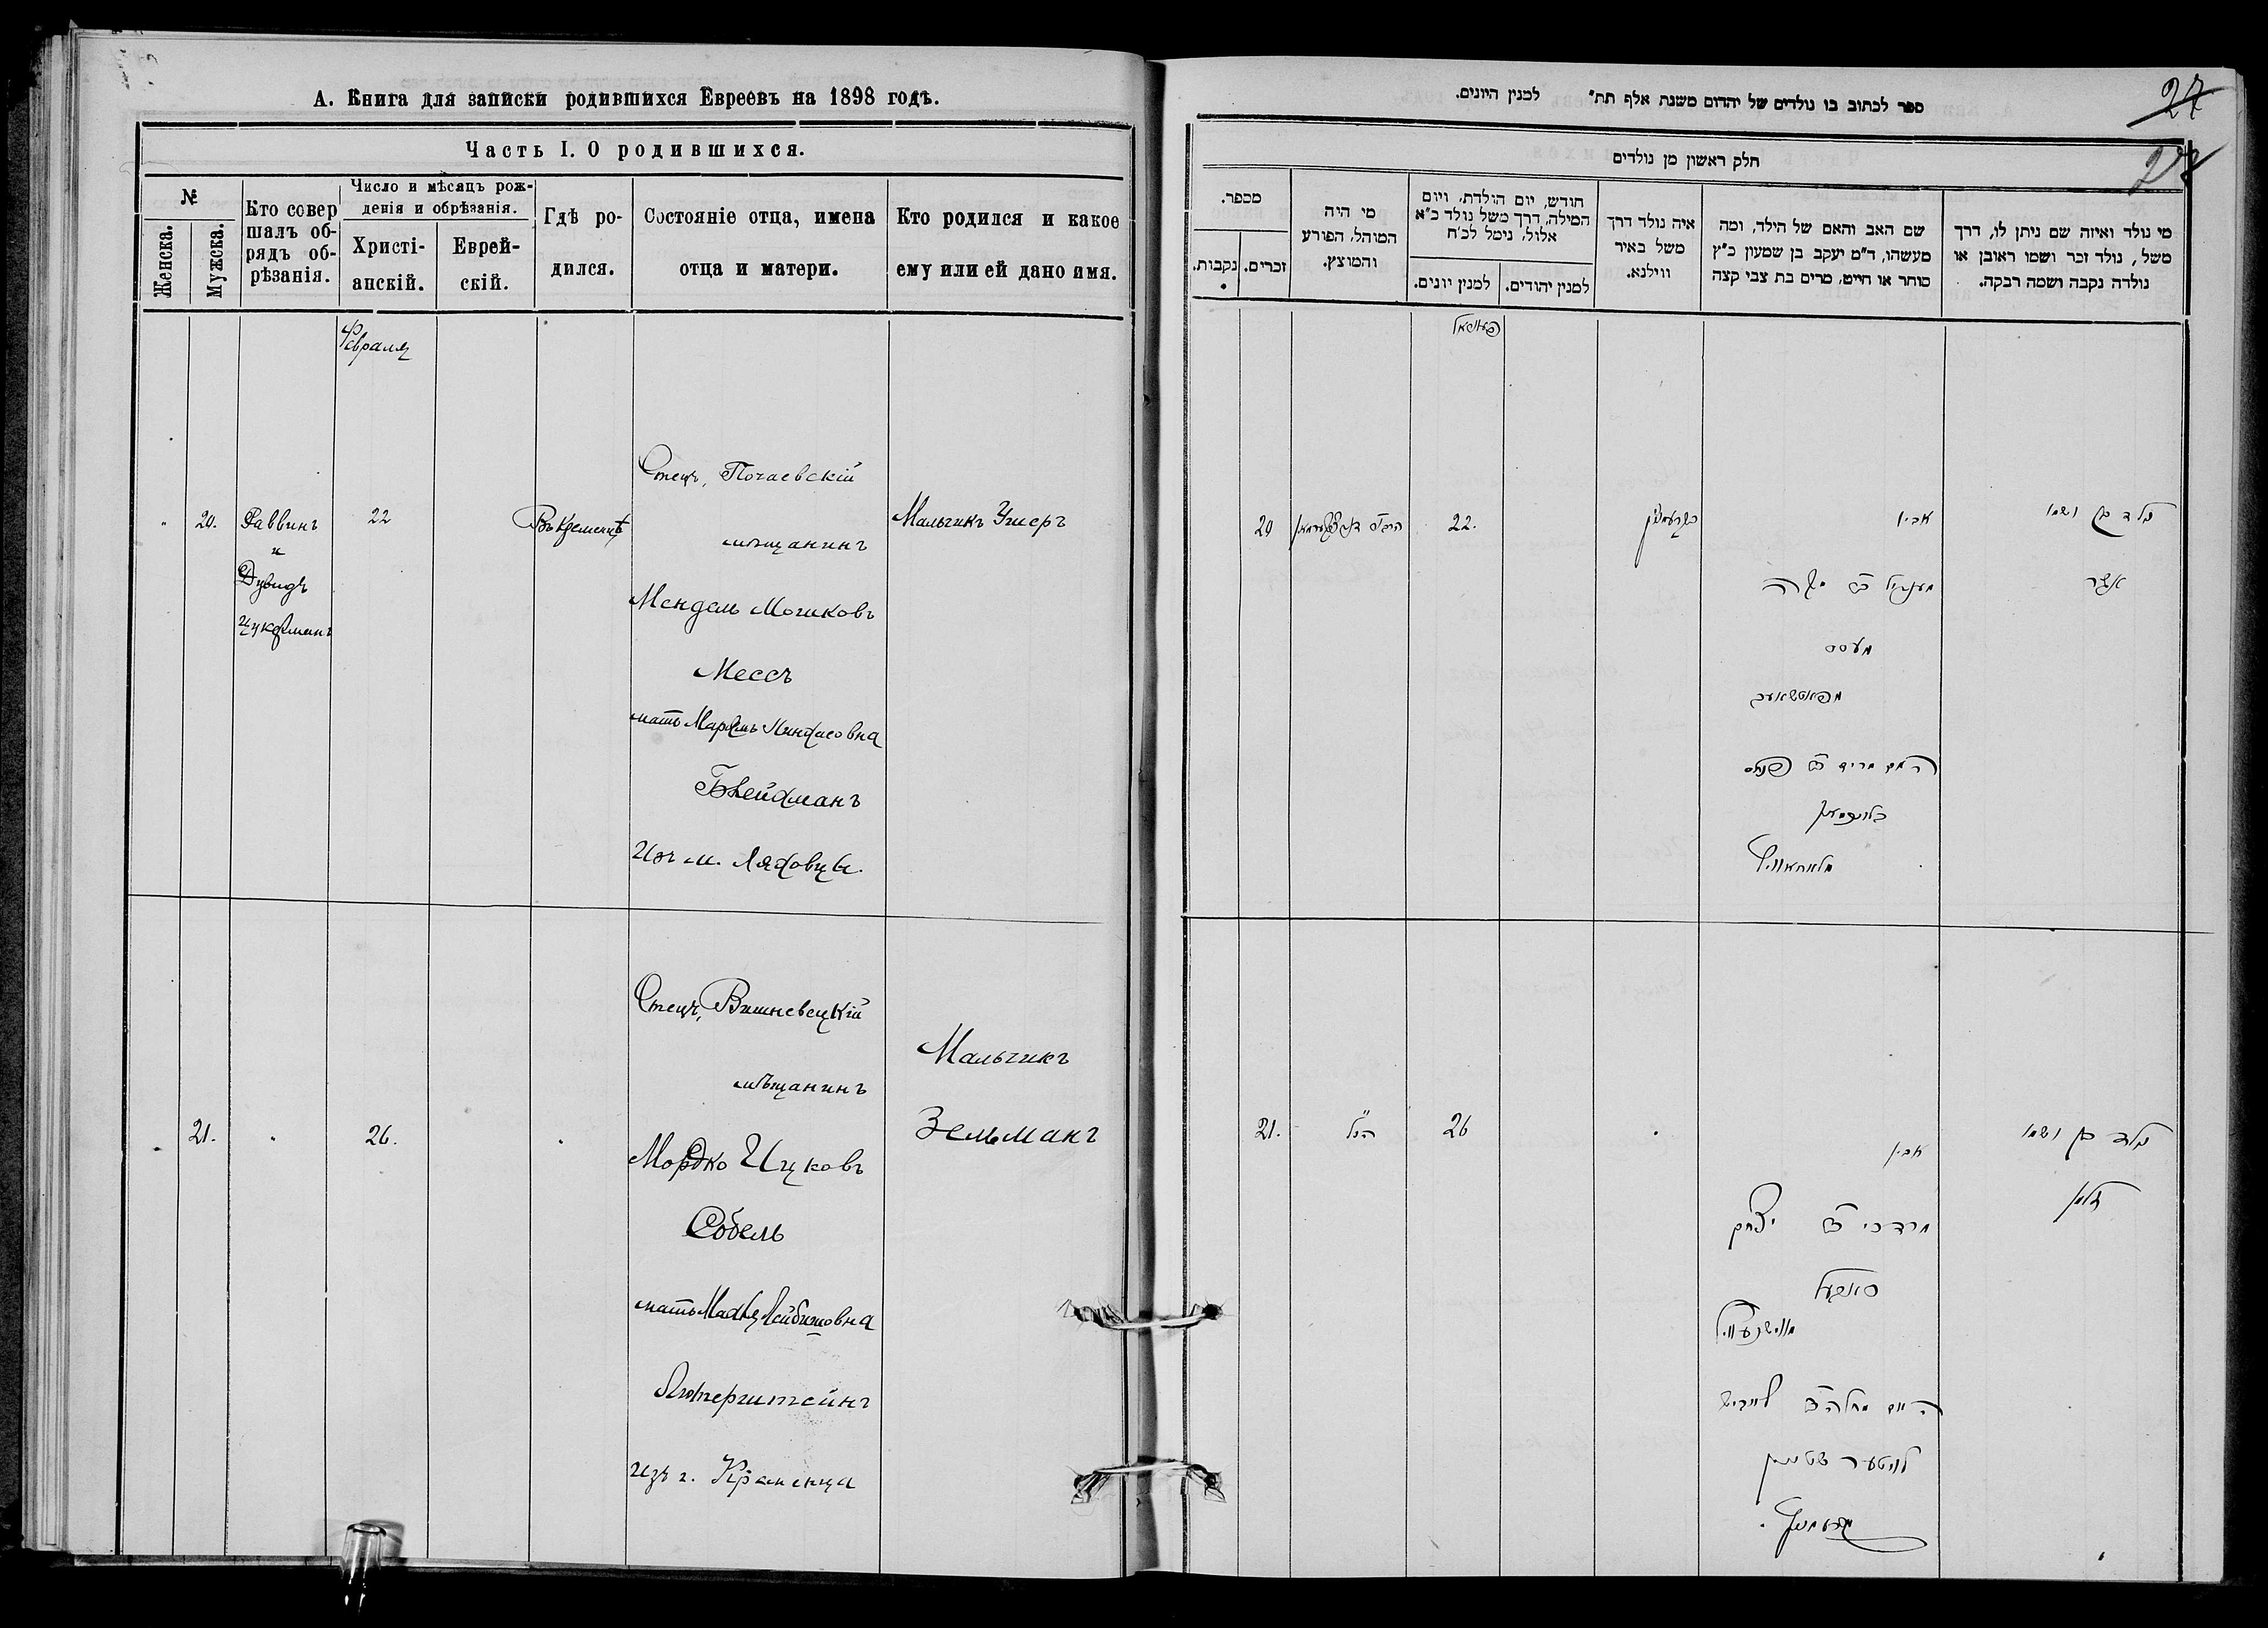 А. Книга для записки родившихся Евреевъ на 1898 годъ.
Часть I. О родившихся.
№
Женска.
Мужска.
Кто совер
шалъ об-
рядъ об-
рѣзанія.
Число и мѣсяцъ рож-
денія и обрѣзанія.
Христі-
анскій.
Еврей-
скій.
Гдѣ ро-
дился.
Состояніе отца, имена
отца и матери.
Кто родился и какое
ему или ей дано имя.
Февраля
20.
Раввинъ
и
Дувидъ
Цукерманъ
22
Въ Кременцѣ
Отецъ, Почаевскій
мѣщанинъ
Мендель Мошковъ
Мессъ
мать Марьямъ Пинхасовна
Блейхманъ
Изъ м. Ляховцы.
Мальчикъ Ушеръ
21.
26.
Отецъ, Вишневецкій
мѣщанинъ
Мордко Ицковъ
Собель
мать Махля Лейбишовна
Лютерштейнъ
изъ г. Кременца
Мальчикъ
Зельманъ
27
28
ספר לכתוב בו נולדים של יהדום משנת אלף תת״ למנין היונים.
חלק ראשון מן נולדים
מכפר.
נקבות.
זכרים.
מי היה
המוהל, הפורע
והמוצץ.
חודש, יום הולדת, ויום
המילה, דרך משל נולד כ״א
אלול, נימל לכ״ח
למנין יונים.
למנין יהודים.
איה נולד דרך
משל באיר
ווילנא.
שם האב והאם של הילד, ומה
מעשהו, ד״מ יעקב בן שמעון כ״ץ
סוחר או חייט, מרים בת צבי קצה
מי נולד ואיזה שם ניתן לו, דרך
משל, נולד זכר ושמו ראובן או
נולדה נקבה ושמה רבקה.
20
22.
בקרעמניץ
אביו
מענדיל ב״ר משה
מעסס
מפאטשאעב
האם מרים ב״ר פנחס
בלייכמאן
מלאחאוויץ
נולד בן ושמו
אשר
21.
הנ״ל
26
אביו
מרדכי ב״ר יצחק
סאבעל
מווישניעוויץ
האם מחלה ב״ר לייביש
לויטער שטיין
מקרעמניץ
נולד בן ושמו
זלמן